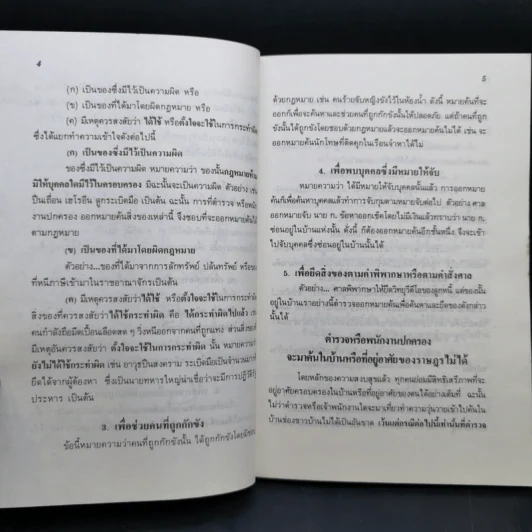 4
(ก) เป็นของซึ่งมีไว้เป็นความผิด หรือ
(ข) เป็นของที่ได้มาโดยผิดกฎหมาย หรือ
(ค) มีเหตุควรสงสัยว่า ได้ใช้ หรือตั้งใจจะใช้ในการกระทำผิด
ซึ่งได้แยกทำความเข้าใจดังต่อไปนี้
(ก) เป็นของซึ่งมีไว้เป็นความผิด
ของซึ่งมีไว้เป็นความผิด หมายความว่า ของนั้นกฎหมายห้าม
มิให้บุคคลใดมีไว้ในครอบครอง มิฉะนั้นจะเป็นความผิด ตัวอย่าง เช่น
ปืนเถื่อน เฮโรอีน ลูกระเบิดมือ เป็นต้น ฉะนั้น การที่ตำรวจ หรือพนัก
งานปกครอง ออกหมายค้นสิ่งของเหล่านี้ จึงชอบที่จะออกหมายค้นได้
ตามกฎหมาย
(ข) เป็นของที่ได้มาโดยผิดกฎหมาย
ตัวอย่าง...ของที่ได้มาจากการลักทรัพย์ ปล้นทรัพย์ หรือของ
ที่หนีภาษีเข้ามาในราชอาณาจักรเป็นต้น
(ค) มีเหตุควรสงสัยว่าได้ใช้ หรือตั้งใจจะใช้ในการกระทำผิด
สิ่งของที่มีเหตุควรสงสัยว่าได้ใช้กระทำผิด คือ ได้กระทำผิดไปแล้ว เช่น
คนกำลังถือมีดเปื้อนเลือดสด ๆ วิ่งหนีออกจากคนที่ถูกแทง ส่วนสิ่งของที่
มีเหตุอันควรสงสัยว่า ตั้งใจจะใช้ในการกระทำผิด นั้น หมายความว่า
ยังไม่ได้ใช้กระทำผิด เช่น อาวุธปืนสงคราม ระเบิดมือเป็นจำนวน
ยึดได้จากผู้ต้องหา ซึ่งเป็นนายทหารใหญ่น่าเชื่อว่าจะมีการปฏิวัติ
ประหาร เป็นต้น
3. เพื่อช่วยคนที่ถูกกักขัง
ข้อนี้หมายความว่าคนที่ถูกกักขังนั้น ได้ถูกกักขังโดย
5
ด้วยกฎหมาย เช่น คนร้ายจับหญิงขังไว้ในห้องน้ำ ดังนี้ หมายค้นที่จะ
ออกก็เพื่อจะค้นหาและช่วยคนที่ถูกกักขังนั้นให้ปลอดภัย แต่ถ้าคนที่ถูกกัก
ขังนั้นได้ถูกขังโดยชอบด้วยกฎหมายแล้วจะออกหมายค้นไม่ได้ เช่น จะ
ออกหมายค้นนักโทษที่ติดคุกในเรือนจำหาได้ไม่
4. เพื่อพบบุคคลซึ่งมีหมายให้จับ
หมายความว่า ได้มีหมายให้จับบุคคลนั้นแล้ว การออกหมาย
ค้นก็เพื่อค้นหาบุคคลแล้วทำการจับกุมตามหมายจับต่อไป ตัวอย่างเช่น ศาล
ออกหมายจับ นาย ก. ข้อหาออกเช็คโดยไม่มีเงินแล้วทราบว่า นาย ก.
ซ่อนอยู่ในบ้านแห่งนั้น ดังนี้ ก็ต้องออกหมายค้นอีกชั้นหนึ่ง จึงจะเข้า
ไปจับบุคคลซึ่งซ่อนอยู่ในบ้านนั้นได้
5. เพื่อยึดสิ่งของตามคำพิพากษาหรือตามคำสั่งศาล
ตัวอย่าง... ศาลพิพากษาให้ยึดวิทยุวีดีโอของลูกหนี้ แต่ของนั้น
อยู่ในบ้านเราอย่างนี้ตำรวจออกหมายค้นเพื่อค้นหาและยึดของดังกล่าว
นั้นได้
ตำรวจหรือพนักงานปกครอง
จะมาค้นในบ้านหรือที่อยู่อาศัยของราษฎรไม่ได้
โดยหลักของความสงบสุขแล้ว ทุกคนย่อมมีสิทธิเสรีภาพที่จะ
อยู่อาศัยครอบครองในบ้านหรือที่อยู่อาศัยของตนได้อย่างเต็มที่ ฉะนั้น
ไม่ว่าตำรวจหรือเจ้าพนักงานใดจะมาเที่ยวทำความวุ่นวายเข้าไปค้นใน
บ้านช่องชาวบ้านไม่ได้เป็นอันขาด เว้นแต่กรณีต่อไปนี้เท่านั้นที่ตำรวจ